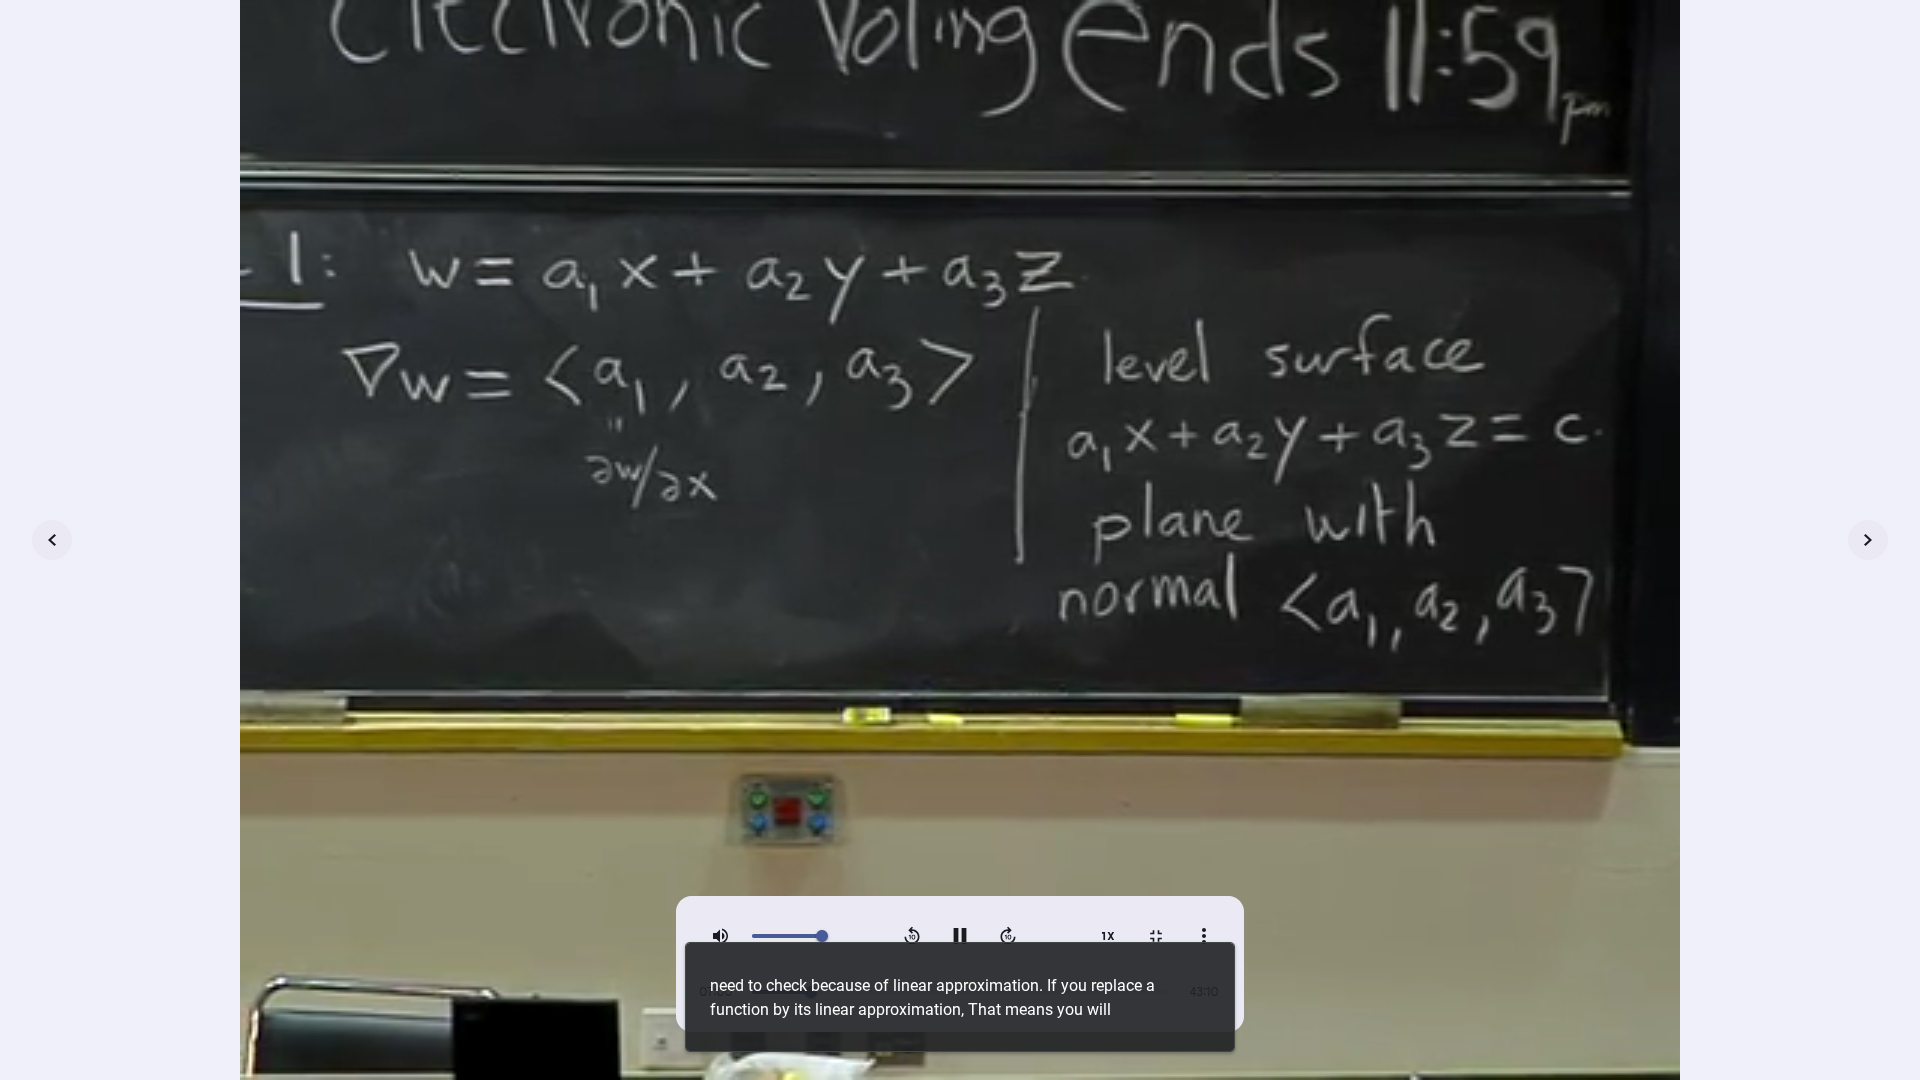 Electronic Voting ends 11:59 pm
1: w = a₁x + a₂y + a₃z
∇w = ⟨a₁, a₂, a₃⟩
"
∂w/∂x
level surface
a₁x + a₂y + a₃z = c.
plane with
normal ⟨a₁, a₂, a₃⟩
10
10
1X
43:10
need to check because of linear approximation. If you replace a
function by its linear approximation, That means you will